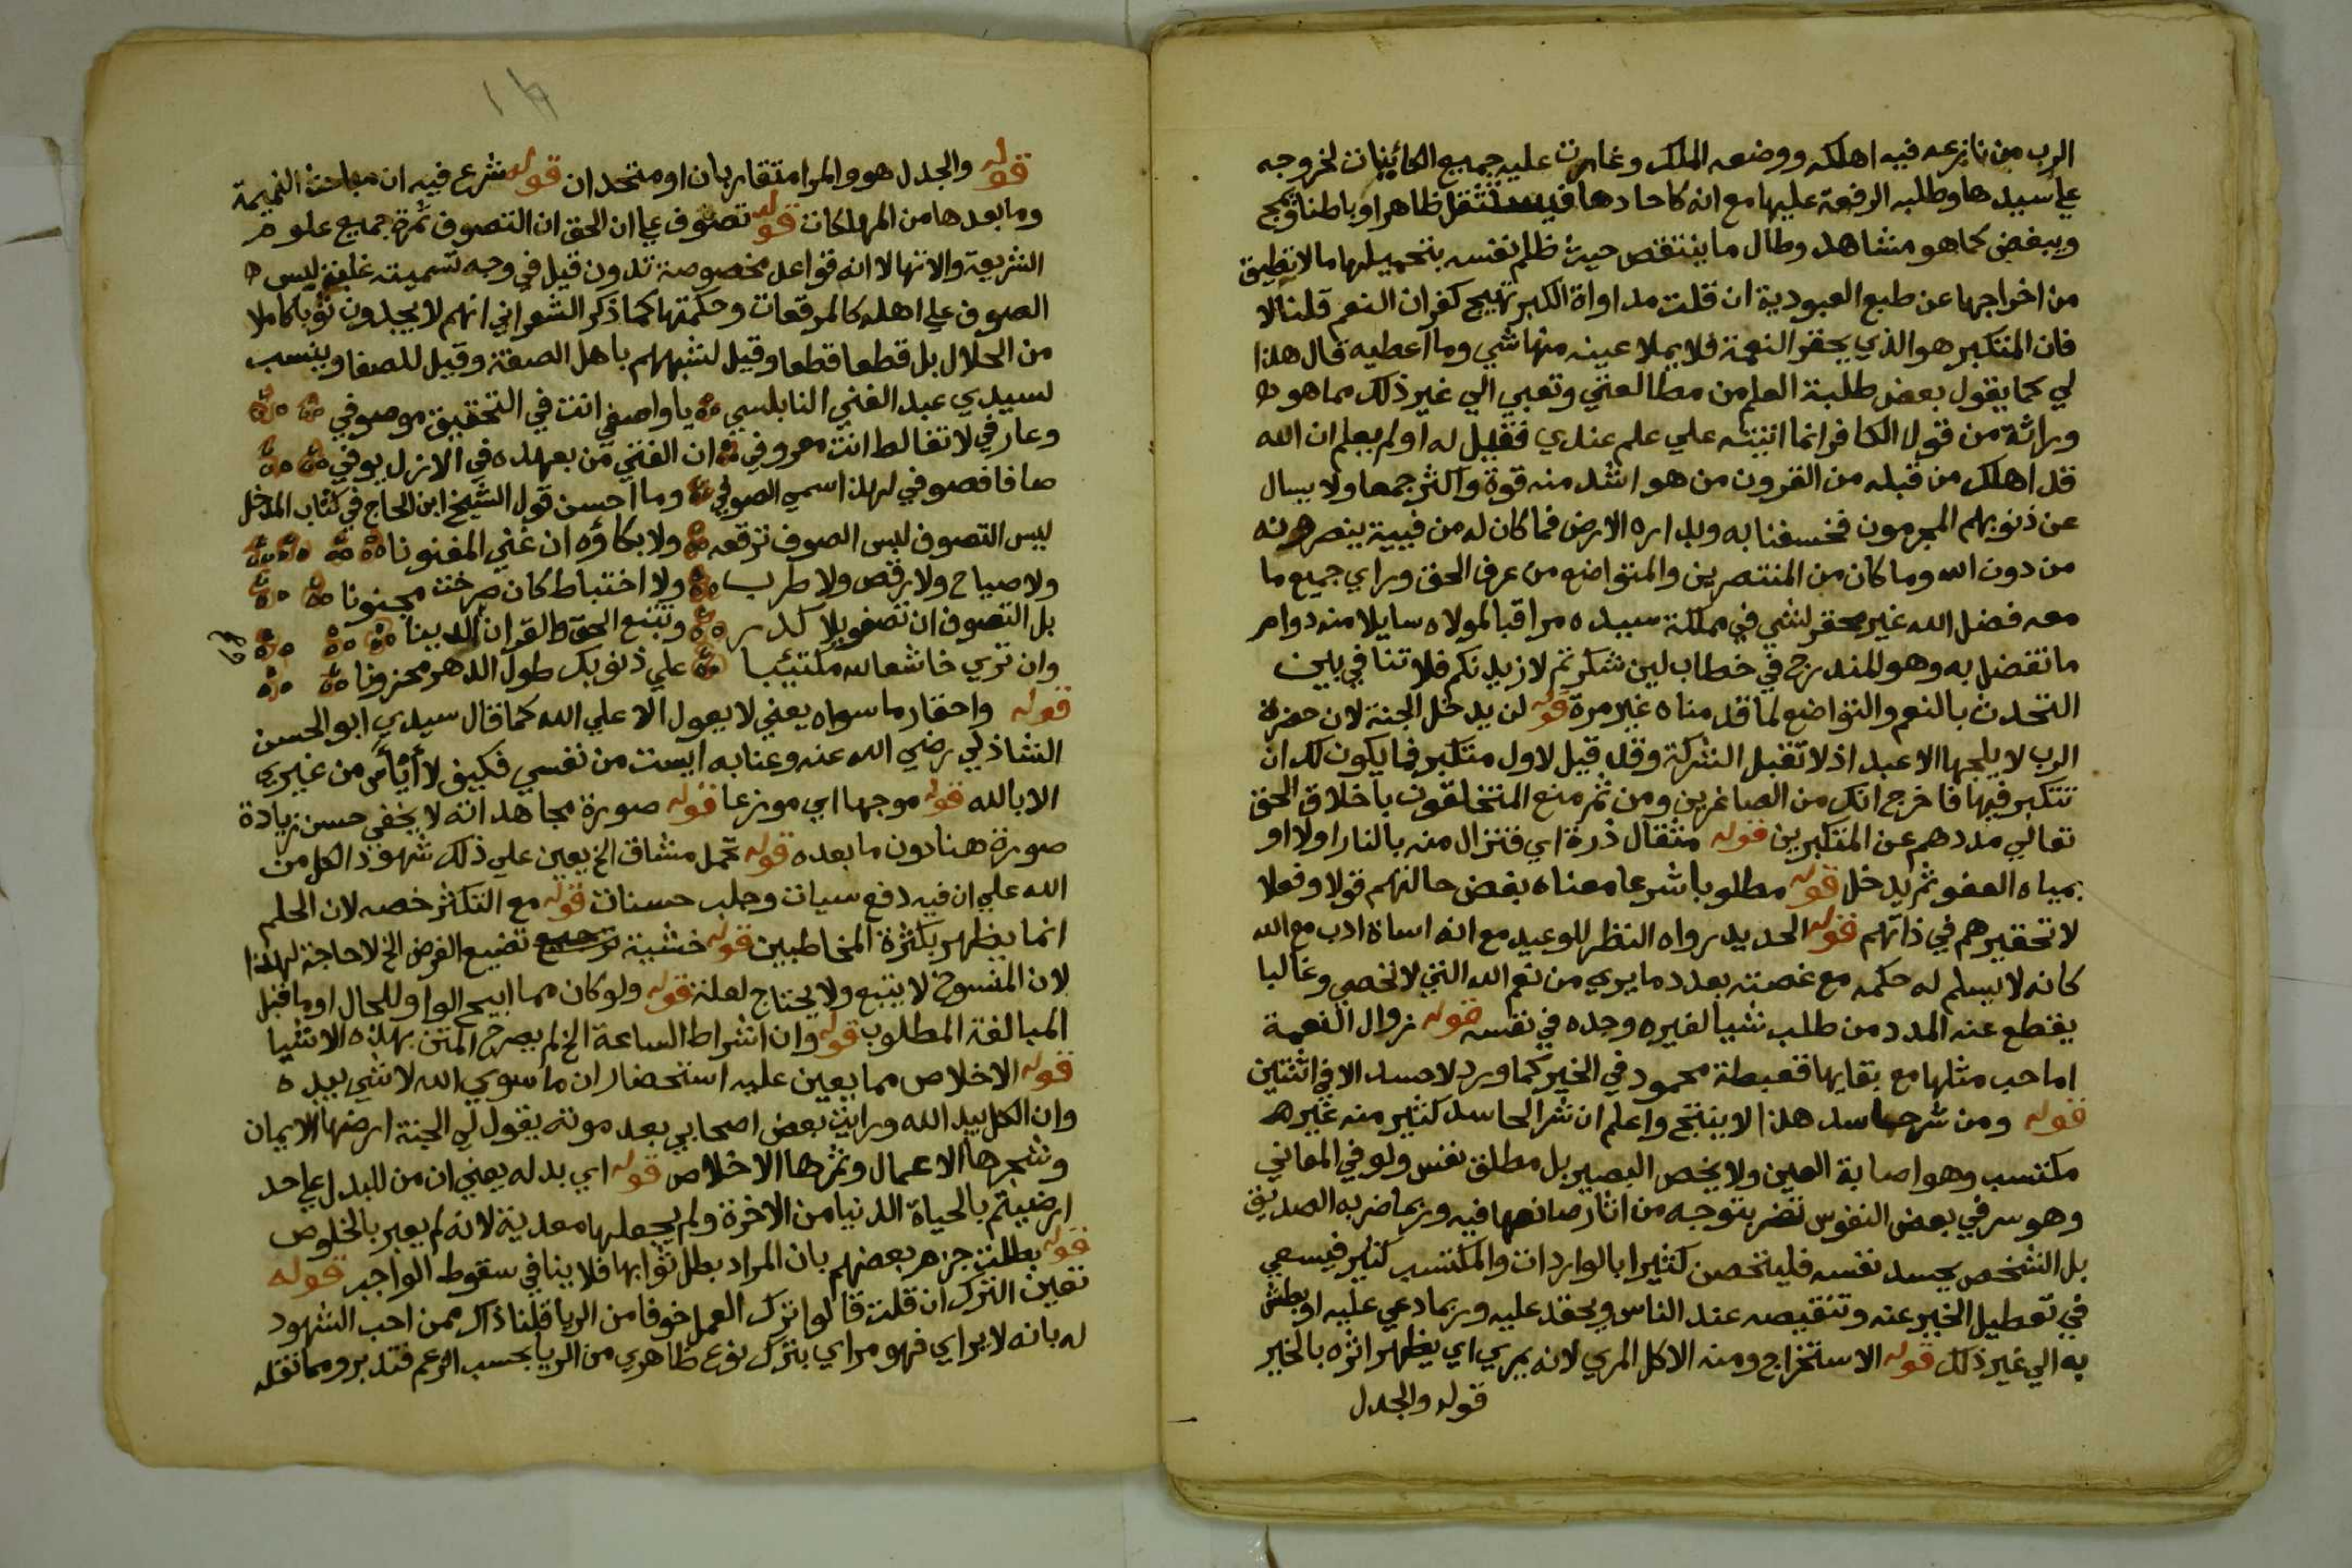 الرب من نازعه فيه اهلكه ووضعه الملك وغارت عليه جميع الكائينات لخروجه
علي سيدها وطلبه الرفعة عليها مع انه كاحادها فيستثقل ظاهرا وباطنا ويمج
ويبغض كما هو مشاهد وطال ما ينتقص حيث ظلم نفسه بتحميلها ما لا تطيق
من اخراجها عن طبع العبودية ان قلت مداواة الكبر تهيج كفران النعم قلنا لا
فان المتكبر هو الذي يحقر النعمة فلا يملا عينه منها شي وما اعطيه قال هذا
لي كما يقول بعض طلبة العلم من مطالعتي وتعبي الي غير ذلك مما هو
وراثة من قول الكافر انما اتيته علي علم عندي فقيل له اولم يعلم ان الله
قد اهلك من قبله من القرون من هو اشد منه قوة واكثر جمعا ولا يسال
عن ذنوبهم المجرمون فخسفنا به وبداره الارض فما كان له من فيية ينصرونه
من دون الله وما كان من المنتصرين والمتواضع من عرف الحق وراي جميع ما
معه فضل الله غير محقر لشي في مملكة سيده مراقبا لمولاه سايلا منه دوام
ما تفضل به وهو المندرج في خطاب لين شكرتم لازيدنكم فلا تنافي بين
التحدث بالنعم والتواضع لما قدمناه غير مرة قوله لن يدخل الجنة لان حضرة
الرب لا يلجها الا عبد اذ لا تقبل الشركة وقد قيل لاول متكبر فما يكون لك ان
تتكبر فيها فاخرج انك من الصاغرين ومن ثم منع المتخلقون باخلاق الحق
تعالي مددهم عن المتكبرين قوله مثقال ذرة اي فتزال منه بالنار اولا او
بمياه العفو ثم يدخل قوله مطلوبا شرعا معناه بغض حالتهم قولا وفعلا
لا تحقيرهم في ذاتهم قوله الحديد رواه النظر للوعيد مع انه اساة ادب مع الله
كانه لا يسلم له حكمه مع غصته بعدد ما يري من نعم الله التي لا تحصي وغالبا
يقطع عنه المدد من طلب شيا لغيره وجده في نفسه قوله زوال النعمة
اما حب مثلها مع بقايها فغبطة محمود في الخير كما ورد لا حسد الا في اثنتين
قوله ومن شر حاسد هذا لا ينتج واعلم ان شر الحاسد كثير منه غير
مكتسب وهو اصابة العين ولا يخص البصير بل مطلق نفس ولو في المعاني
وهو سر في بعض النفوس تضر بتوجه من اثار صانعها فيه وربما ضر به الصديق
بل الشخص يحسد نفسه فليتحصن كثيرا بالواردات والمكتسب كثير فيسعي
في تعطيل الخير عنه وتنقيصه عند الناس ويحقد عليه وربما دعي عليه او بطش
به الي غير ذلك قوله الاستخراج ومنه الاكل المري لانه يمري اي يظهر اثره بالخير
قوله والجدل
قوله والجدل هو والمرا متقاربان او متحدان قوله شرع فيه ان مباحث النميمة
وما بعدها من المهلكات قوله تصوف علي ان الحق ان التصوف ثمرة جميع علوم
الشريعة والاتها لا انه قواعد مخصوصة تدون قيل في وجه تسميته غلبة لبس
الصوف علي اهله كالمرقعات وحكمتها كما ذكر الشعراني انهم لا يجدون ثوبا كاملا
من الحلال بل قطعا قطعا وقيل لتشبههم باهل الصفة وقيل للصفا وينسب
لسيدي عبد الغني النابلسي يا واصفي انت في التحقيق موصوفي
وعارفي لا تغالط انت معروفي ان الفتي من بعهده في الازل يوفي
صافا فصوفي لهذا اسمي الصوفي وما احسن قول الشيخ ابن الحاج في كتاب المدخل
ليس التصوف لبس الصوف ترقعه ولا بكاؤه ان غني المغنونا
ولا صياح ولا رقص ولا طرب ولا اختباط كان صرخت مجنونا
بل التصوف ان تصفو بلا كدر وتتبع الحق والقران والدينا
وان تري خاشعا لله مكتيبا علي ذنوبك طول الدهر محزونا
قوله واحتقار ما سواه يعني لا يعول الا علي الله كما قال سيدي ابو الحسن
الشاذلي رضي الله عنه وعنا به ايست من نفسي فكيف لا أيأس من غيري
الا بالله قوله موجها اي موزعا قوله صورة مجاهد انه لا يخفي حسن زيادة
صورة هنا دون ما بعده قوله تحمل مشاق الخ يعين علي ذلك شهود الكل من
الله علي ان فيه دفع سيات وجلب حسنات قوله مع التكثر خصه لان الحلم
انما يظهر بكثرة المخاطبين قوله خشية تضيع الفرض الخ لا حاجة لهذا
لان المنسوخ لا يتبع ولا يحتاج لعلة قوله ولو كان مما ابيح الواو للحال او ما قبل
المبالغة المطلوب قوله وان اشراط الساعة الخ لم يصرح المتن بهذه الاشيا
قوله الاخلاص مما يعين عليه استحضار ان ما سوي الله لا شي بيده
وان الكل بيد الله ورايت بعض اصحابي بعد موته يقول لي الجنة ارضها الايمان
وشجرها الاعمال وثمرها الاخلاص قوله اي بدله يعني ان من للبدل علي حد
ارضيتم بالحياة الدنيا من الاخرة ولم يجعلها معدية لانه لم يعبر بالخلوص
قوله بطلت جزم بعضهم بان المراد بطل ثوابها فلا ينافي سقوط الواجب قوله
تعين الترك ان قلت قالوا ترك العمل خوفا من الريا قلنا ذاك ممن احب الشهود
له بانه لا يراي فهو مراي بترك نوع ظاهري من الريا بحسب الزعم فتدبر ومما نقله